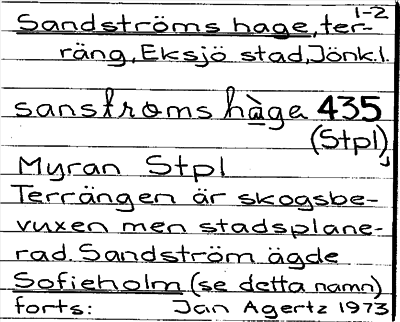 1-2
Sandströms hage, ter-
räng, Eksjö stad, Jönk.l.
sanstroms hàga 435
(Stpl)
Myran Stpl
Terrängen är skogsbe-
vuxen men stadsplane-
rad. Sandström ägde
Sofieholm (se detta namn)
forts: Jan Agertz 1973